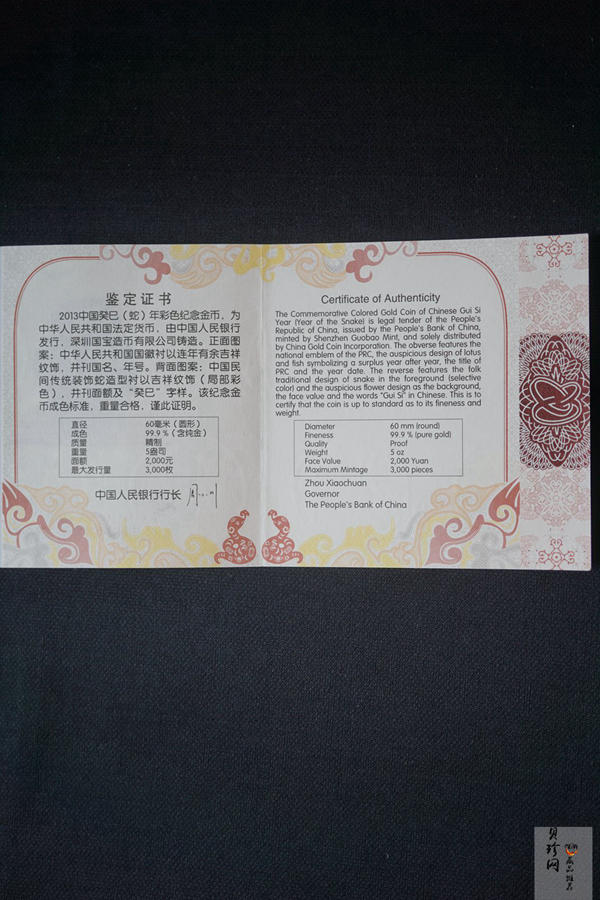 鉴定证书
2013中国癸巳（蛇）年彩色纪念金币，为
中华人民共和国法定货币，由中国人民银行
发行，深圳国宝造币有限公司铸造。正面图
案：中华人民共和国国徽衬以连年有余吉祥
纹饰，并刊国名、年号。背面图案：中国民
间传统装饰蛇造型衬以吉祥纹饰（局部彩
色），并刊面额及“癸巳”字样。该纪念金
币成色标准，重量合格，谨此证明。
直径 60毫米（圆形）
成色 99.9％（含纯金）
质量 精制
重量 5盎司
面额 2,000元
最大发行量 3,000枚
中国人民银行行长
Certificate of Authenticity
The Commemorative Colored Gold Coin of Chinese Gui Si
Year (Year of the Snake) is legal tender of the People's
Republic of China, issued by the People's Bank of China,
minted by Shenzhen Guobao Mint, and solely distributed
by China Gold Coin Incorporation. The obverse features the
national emblem of the PRC, the auspicious design of lotus
and fish symbolizing a surplus year after year, the title of
PRC and the year date. The reverse features the folk
traditional design of snake in the foreground (selective
color) and the auspicious flower design as the background,
the face value and the words "Gui Si" in Chinese. This is to
certify that the coin is up to standard as to its fineness and
weight.
Diameter 60 mm (round)
Fineness 99.9 % (pure gold)
Quality Proof
Weight 5 oz
Face Value 2,000 Yuan
Maximum Mintage 3,000 pieces
Zhou Xiaochuan
Governor
The People's Bank of China
贝珍网